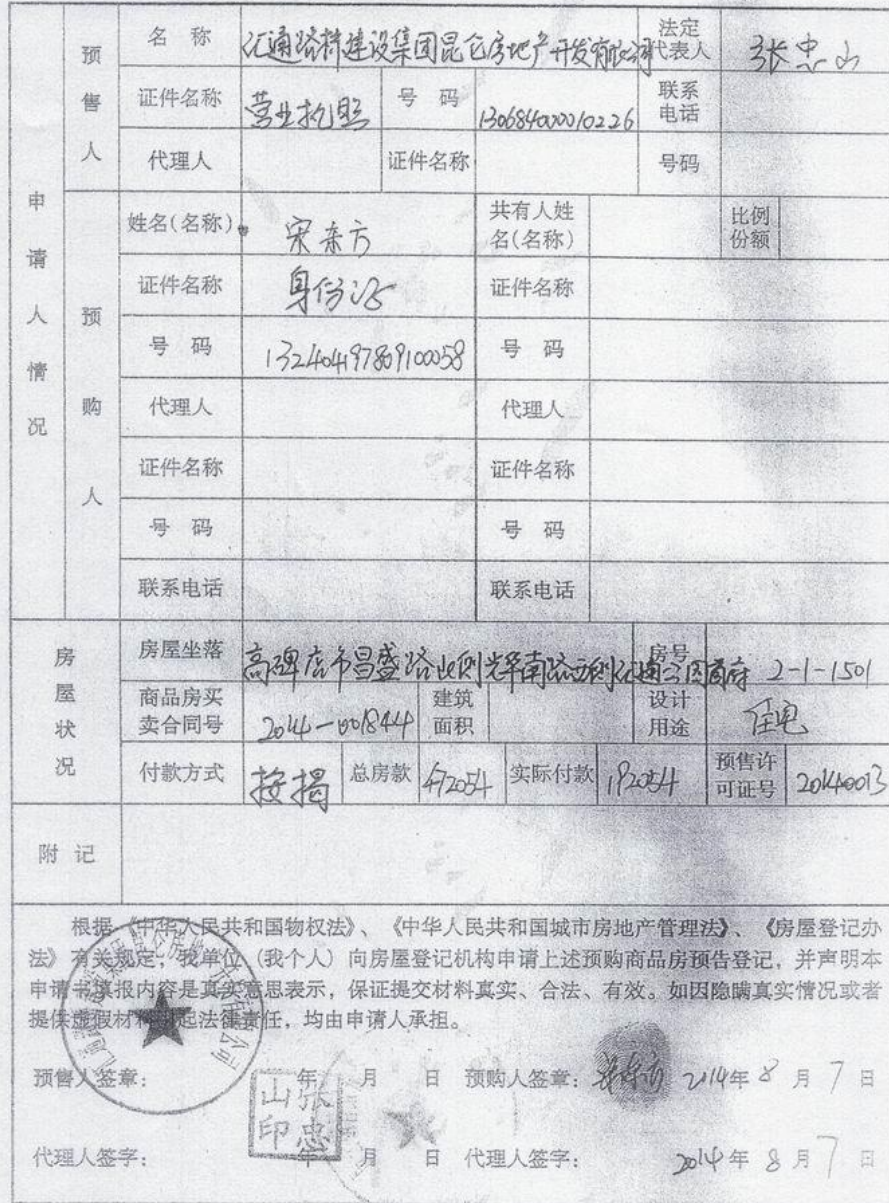 预售人
名 称 汇通路桥建设集团昆仑房地产开发有限公司 法定代表人 张忠山
证件名称 营业执照 号 码 130684000010226 联系电话
代理人 证件名称 号码
申请人情况
预购人
姓名(名称) 宋东方 共有人姓名(名称) 比例份额
证件名称 身份证 证件名称
号 码 132404197809100058 号 码
代理人 代理人
证件名称 证件名称
号 码 号 码
联系电话 联系电话
房屋状况
房屋坐落 高碑店市昌盛路北侧光华南路西侧汇通 房号 2-1-1501
商品房买卖合同号 2014-0018444 建筑面积 设计用途 住宅
付款方式 按揭 总房款 472054 实际付款 192054 预售许可证号 20140013
附 记
根据《中华人民共和国物权法》、《中华人民共和国城市房地产管理法》、《房屋登记办
法》有关规定,我单位(我个人)向房屋登记机构申请上述预购商品房预告登记,并声明本
申请书填报内容是真实意思表示,保证提交材料真实、合法、有效。如因隐瞒真实情况或者
提供虚假材料引起法律责任,均由申请人承担。
预售人签章: 年 月 日 预购人签章: 宋东方 2014年 8 月 7 日
张忠山印
代理人签字: 年 月 日 代理人签字: 2014年 8 月 7 日